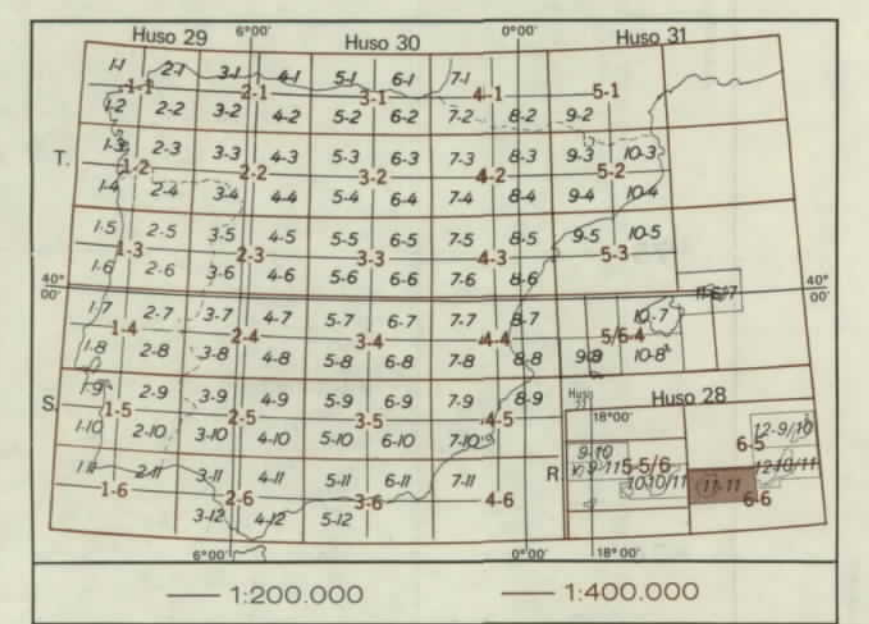 Huso 29 6°00' Huso 30 0°00' Huso 31
1-1 2-1 3-1 4-1 5-1 6-1 7-1
1-1 2-1 3-1 4-1 5-1
1-2 2-2 3-2 4-2 5-2 6-2 7-2 8-2 9-2
T. 1-3 2-3 3-3 4-3 5-3 6-3 7-3 8-3 9-3 10-3
1-2 2-2 3-2 4-2 5-2
1-4 2-4 3-4 4-4 5-4 6-4 7-4 8-4 9-4 10-4
1-5 2-5 3-5 4-5 5-5 6-5 7-5 8-5 9-5 10-5
1-3 2-3 3-3 4-3 5-3
1-6 2-6 3-6 4-6 5-6 6-6 7-6 8-6
40°00' 40°00'
1-7 2-7 3-7 4-7 5-7 6-7 7-7 8-7 10-7
1-4 2-4 3-4 4-4 5/6-4
1-8 2-8 3-8 4-8 5-8 6-8 7-8 8-8 10-8
S. 1-9 2-9 3-9 4-9 5-9 6-9 7-9 8-9
1-5 2-5 3-5 4-5
1-10 2-10 3-10 4-10 5-10 6-10 7-10
1-11 2-11 3-11 4-11 5-11 6-11 7-11
1-6 2-6 3-6 4-6
3-12 4-12 5-12
Huso 28
18°00'
12-9/10
6-5
9-10
R. 5-5/6
10-10/11 11-11 12-10/11
6-6
6°00' 0°00' 18°00'
1:200.000 1:400.000